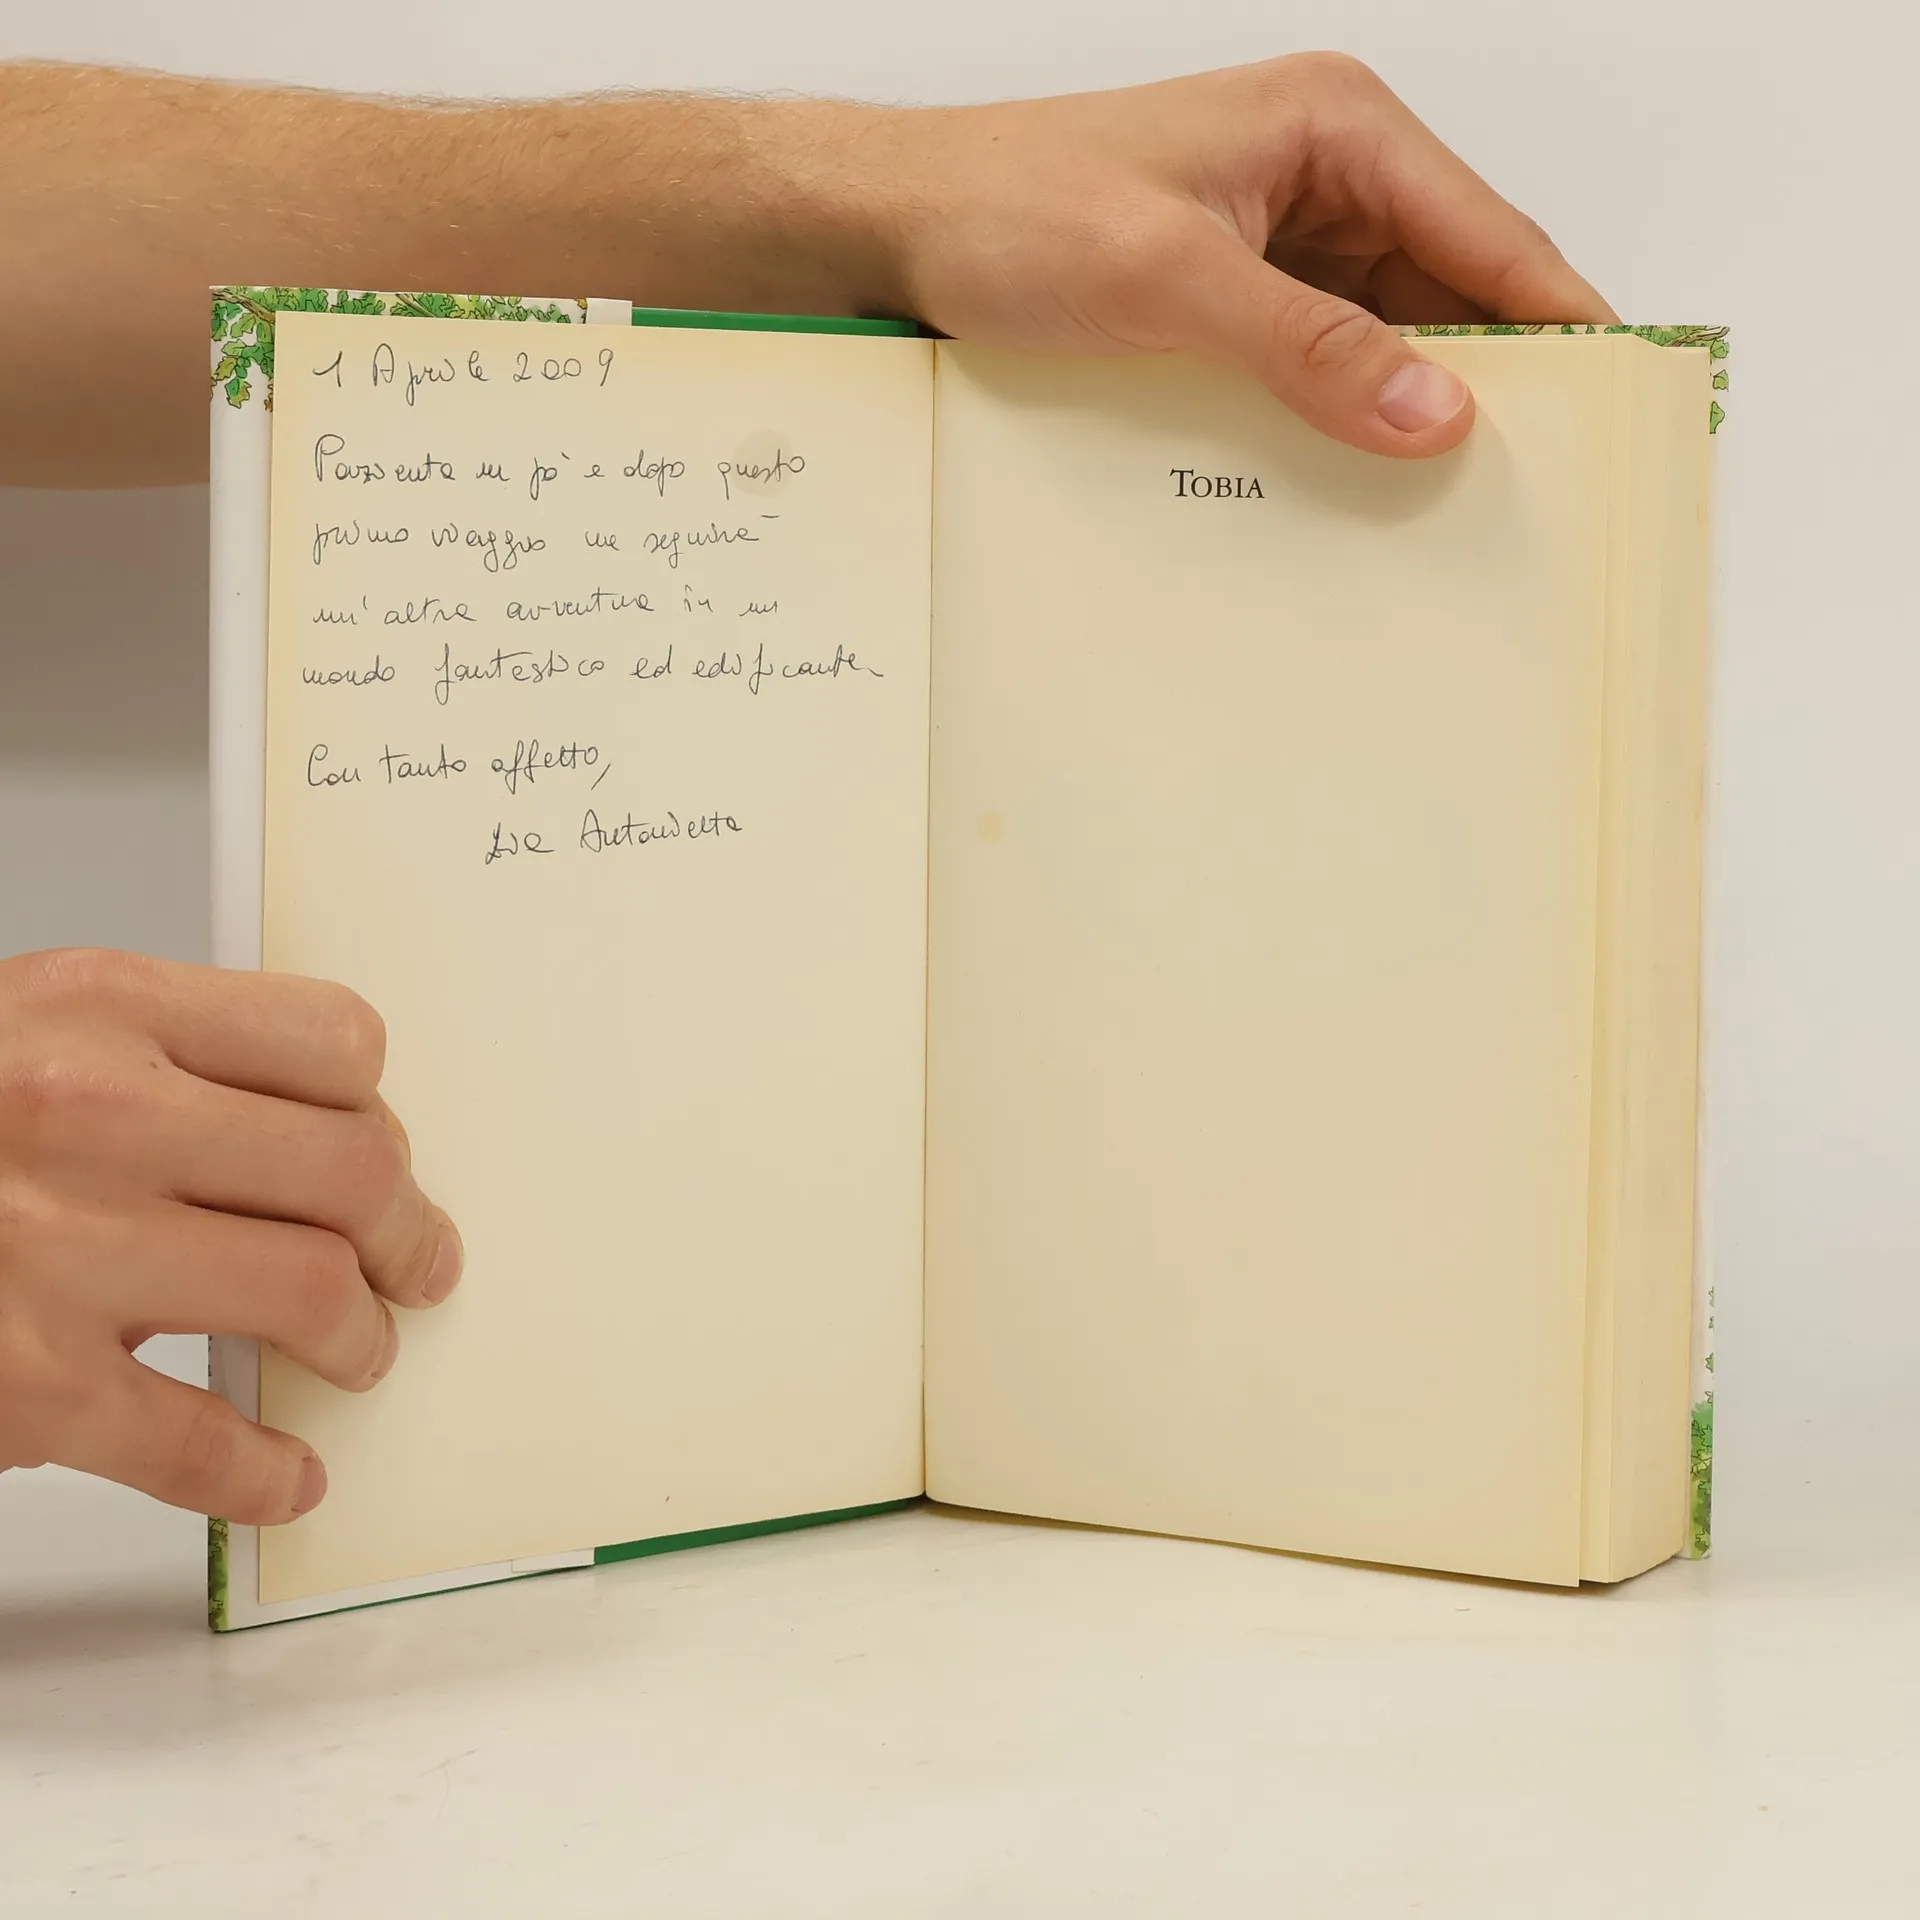 1 Aprile 2009
Pazienta un po' e dopo questo
primo viaggio ne seguirà
un'altra avventura in un
mondo fantastico ed edificante
Con tanto affetto,
Zia Antonietta
TOBIA